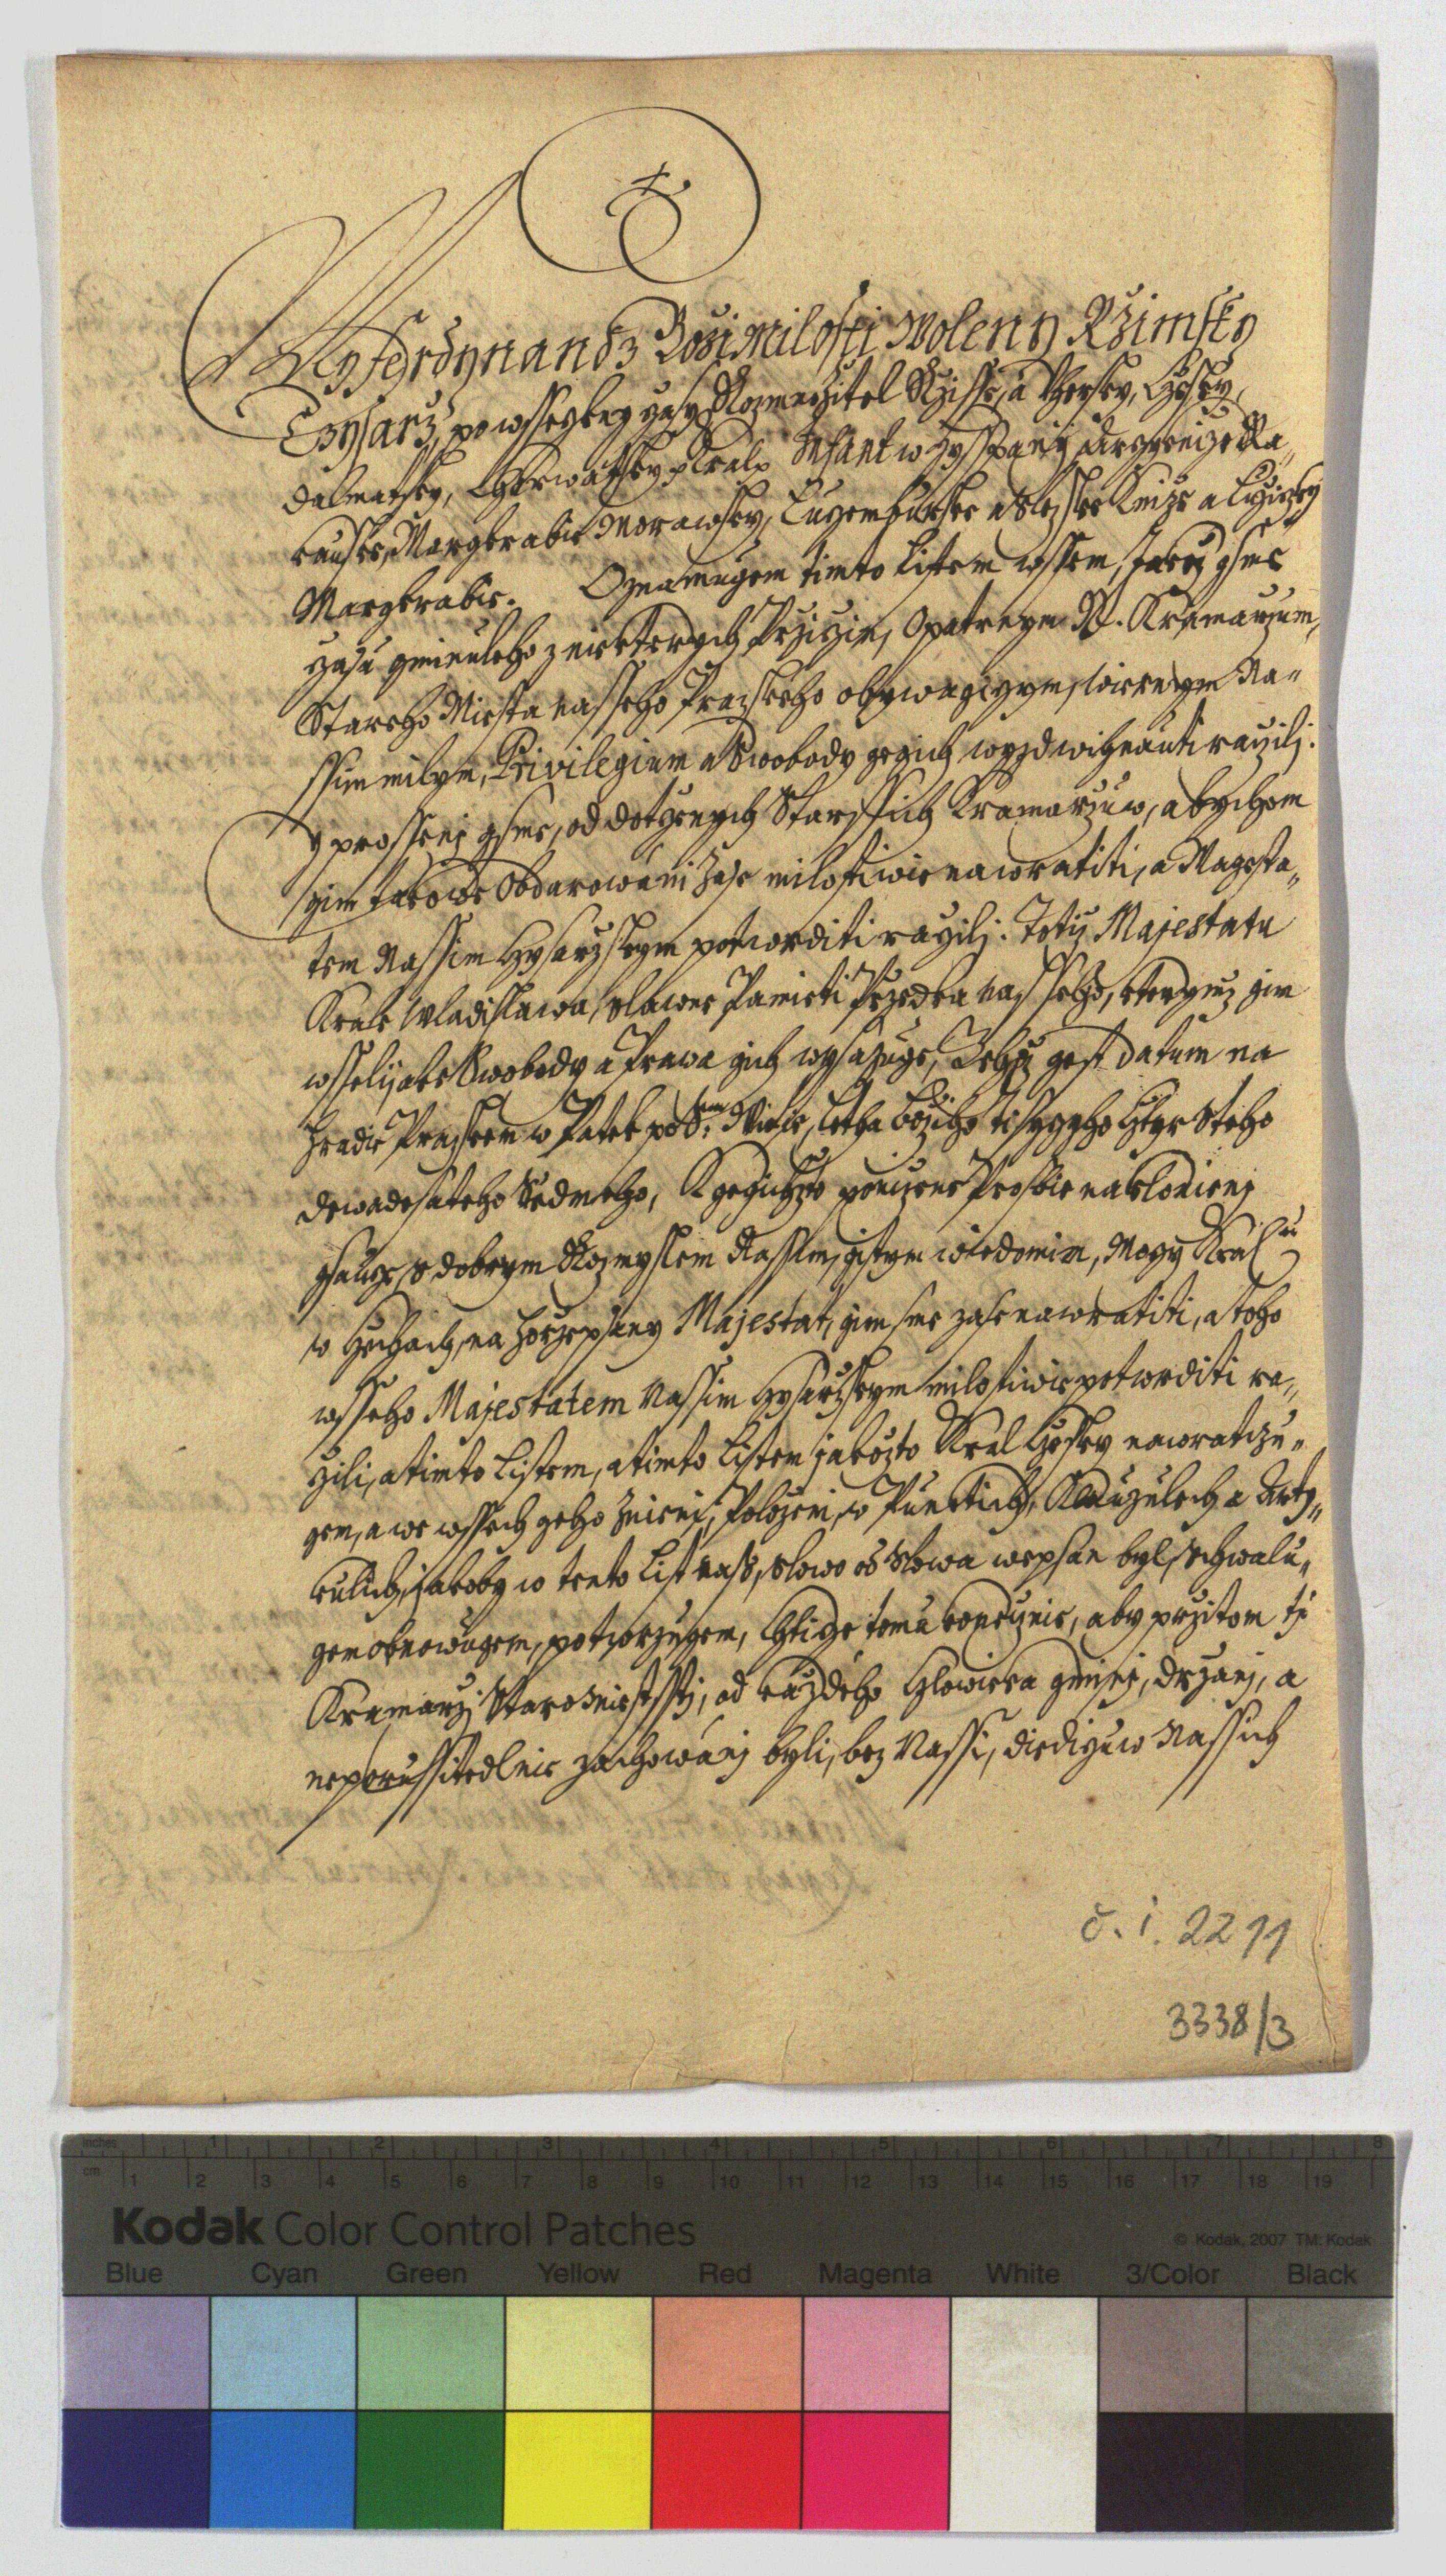 My Ferdynand z Boži Milosti Woleny Rzimsky
Cysarz, po wsseczky czasy Rozmnožitel Rzisse, a Uhersky, Czesky,
Dalmatsky, Charwatsky Kral, Infant w Hyspanij Arcykniže Ra„
kauske, Margkrabie Morawsky, Lucemburske a Slezske Kniže a Lužiczky
Margkrabie. Oznamugem timto Listem wssem, Jakož gsme
czasu gminuleho z niekterych Prziczin, Opatrnym N. Kramarzum,
Stareho Miesta nasseho Pražskeho obywagiczym, wiernym Na„
ssim milym, Privilegium a Swobody gegich wyzdwihnauti raczili.
Y prosseni gsme, od dotczenych Starssich Kramarzuw, abychom
gim takowe Obdarowani Zase milostiwie nawratiti, a Magesta„
tem Nassim Cysarzskym potwrditi raczili. Totiž Majestatu
Krale Wladislawa, slawne Pamieti Przedka nasseho, kterymž gim
wsselijake Swobody a Prawa gich wysazuge, Gehož gest Datum na
Hradie Pražskem w Patek po Sm. Witie, Letha Božiho tisyczyho cztyrsteho
dewadesateho Sedmeho, K gegichžto ponižené Prosbie naklonieni
gsaucze, s dobrym Rozmyslem Nassim, gistym wiedomim, Moczy Kralu
w Czechach, na horzepsany Majestat, gim sme zase nawratiti, a toho
wsseho Majestatem Nassim Cysarzskym milostiwie potwrditi ra„
czili, a timto Listem, a timto Listem jakožto Kral Czesky nawraczu„
gem, a we wssech geho Znieni, Položeni, w Punktich, Klauzulech a Arty„
kulich, jakoby w tento List nass, slowo od slowa wepsan byl, schwalu„
gem obnowugem, potwrzugem, Chticze tomu konecznie, aby przitom ti
Kramarzi Staromiestssti, od každeho Czlowieka gmini, držani, a
neporussitedlnie zachowáni byli, bez Nassi, Diediczuw Nassich
č. i. 2211
3338/3
inches 1 2 3 4 5 6 7 8
cm 1 2 3 4 5 6 7 8 9 10 11 12 13 14 15 16 17 18 19
Kodak Color Control Patches
© Kodak, 2007 TM: Kodak
Blue Cyan Green Yellow Red Magenta White 3/Color Black